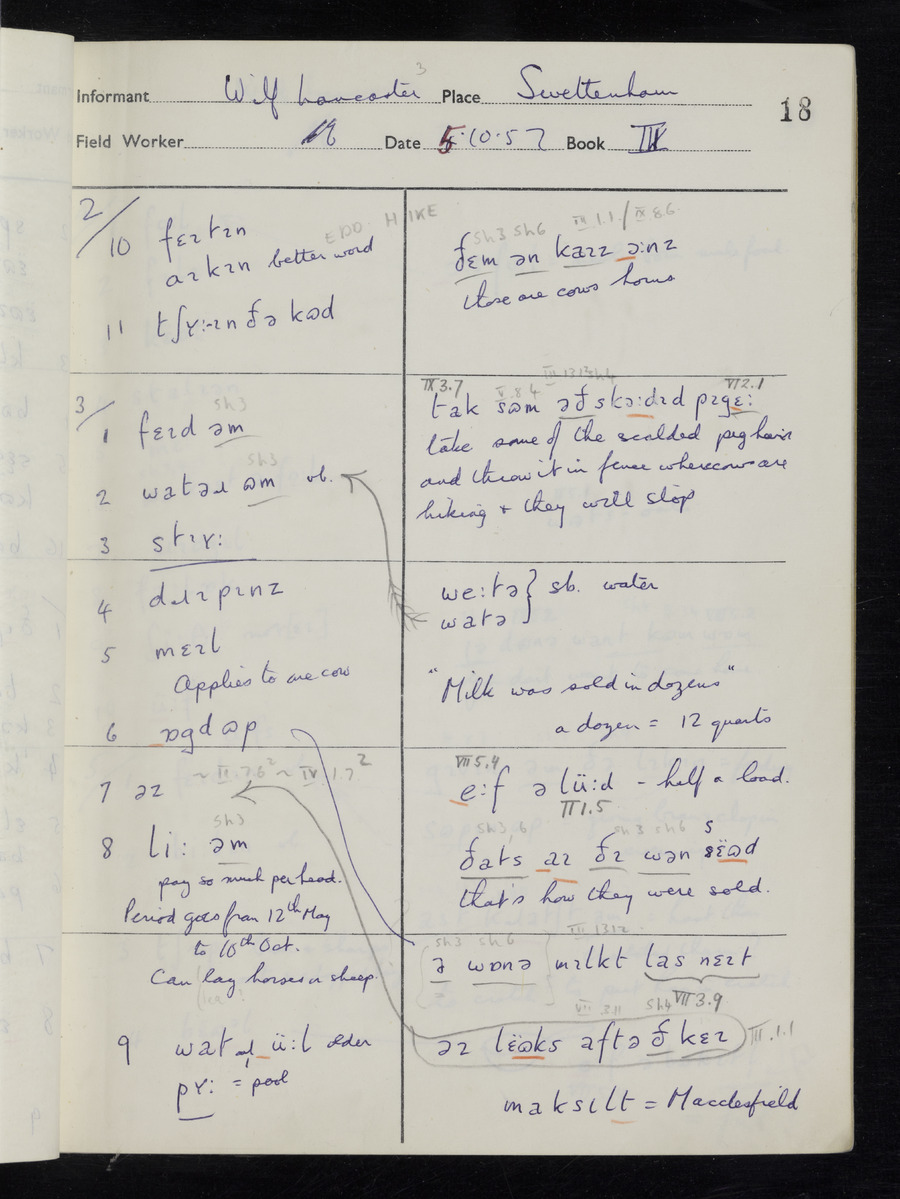 Informant Wilf Lancaster 3 Place Swettenham
18
Field Worker Date 5·10·57 Book III
2/
10 fɛɪtɪn
aɪkɪn better word
EDD HIKE
11 tʃʏ:ɪn ðə kɷd
sh3 sh6 III 1.1 / IX 8.6
ðɛm ən kaɪz ə:nz
those are cows horns
3/
sh3
1 fɛɪd əm
sh3
2 watəɹ ɷm vb.
3 stɪʏ:
IX 3.7 V.8.4 III 13 12 sh4 VI 2.1
tak sɷm əð skɔ:dɪd pɪgɛ:
take some of the scalded pig hair
and throw it in fence where cows are
hiking + they will stop
4 dɹɪpɪnz
5 mɛɪl
Applies to one cow
6 ɒgdɷp
we:tə } sb. water
watə }
"Milk was sold in dozens"
a dozen = 12 quarts
7 əz ~ II.7.6² ~ IV.1.7²
sh3
8 li: əm
pay so much per head.
Period goes from 12th May
to 10th Oct.
Can lay horses or sheep.
VII 5.4
e:f ə lü:d - half a load.
II 1.5
sh3, 6 sh3 sh6 s
ðats aɪ ðɪ wən sëɷd
that's how they were sold.
sh3 sh6 III 13 12
ə wɒnə mɪlkt las nɛɪt
VII 3.9
sh4
əz lëɷks aftə ð kɛɪ III.1.1
9 wat ü:l older
pʏ: = pool
maksɪlt = Macclesfield